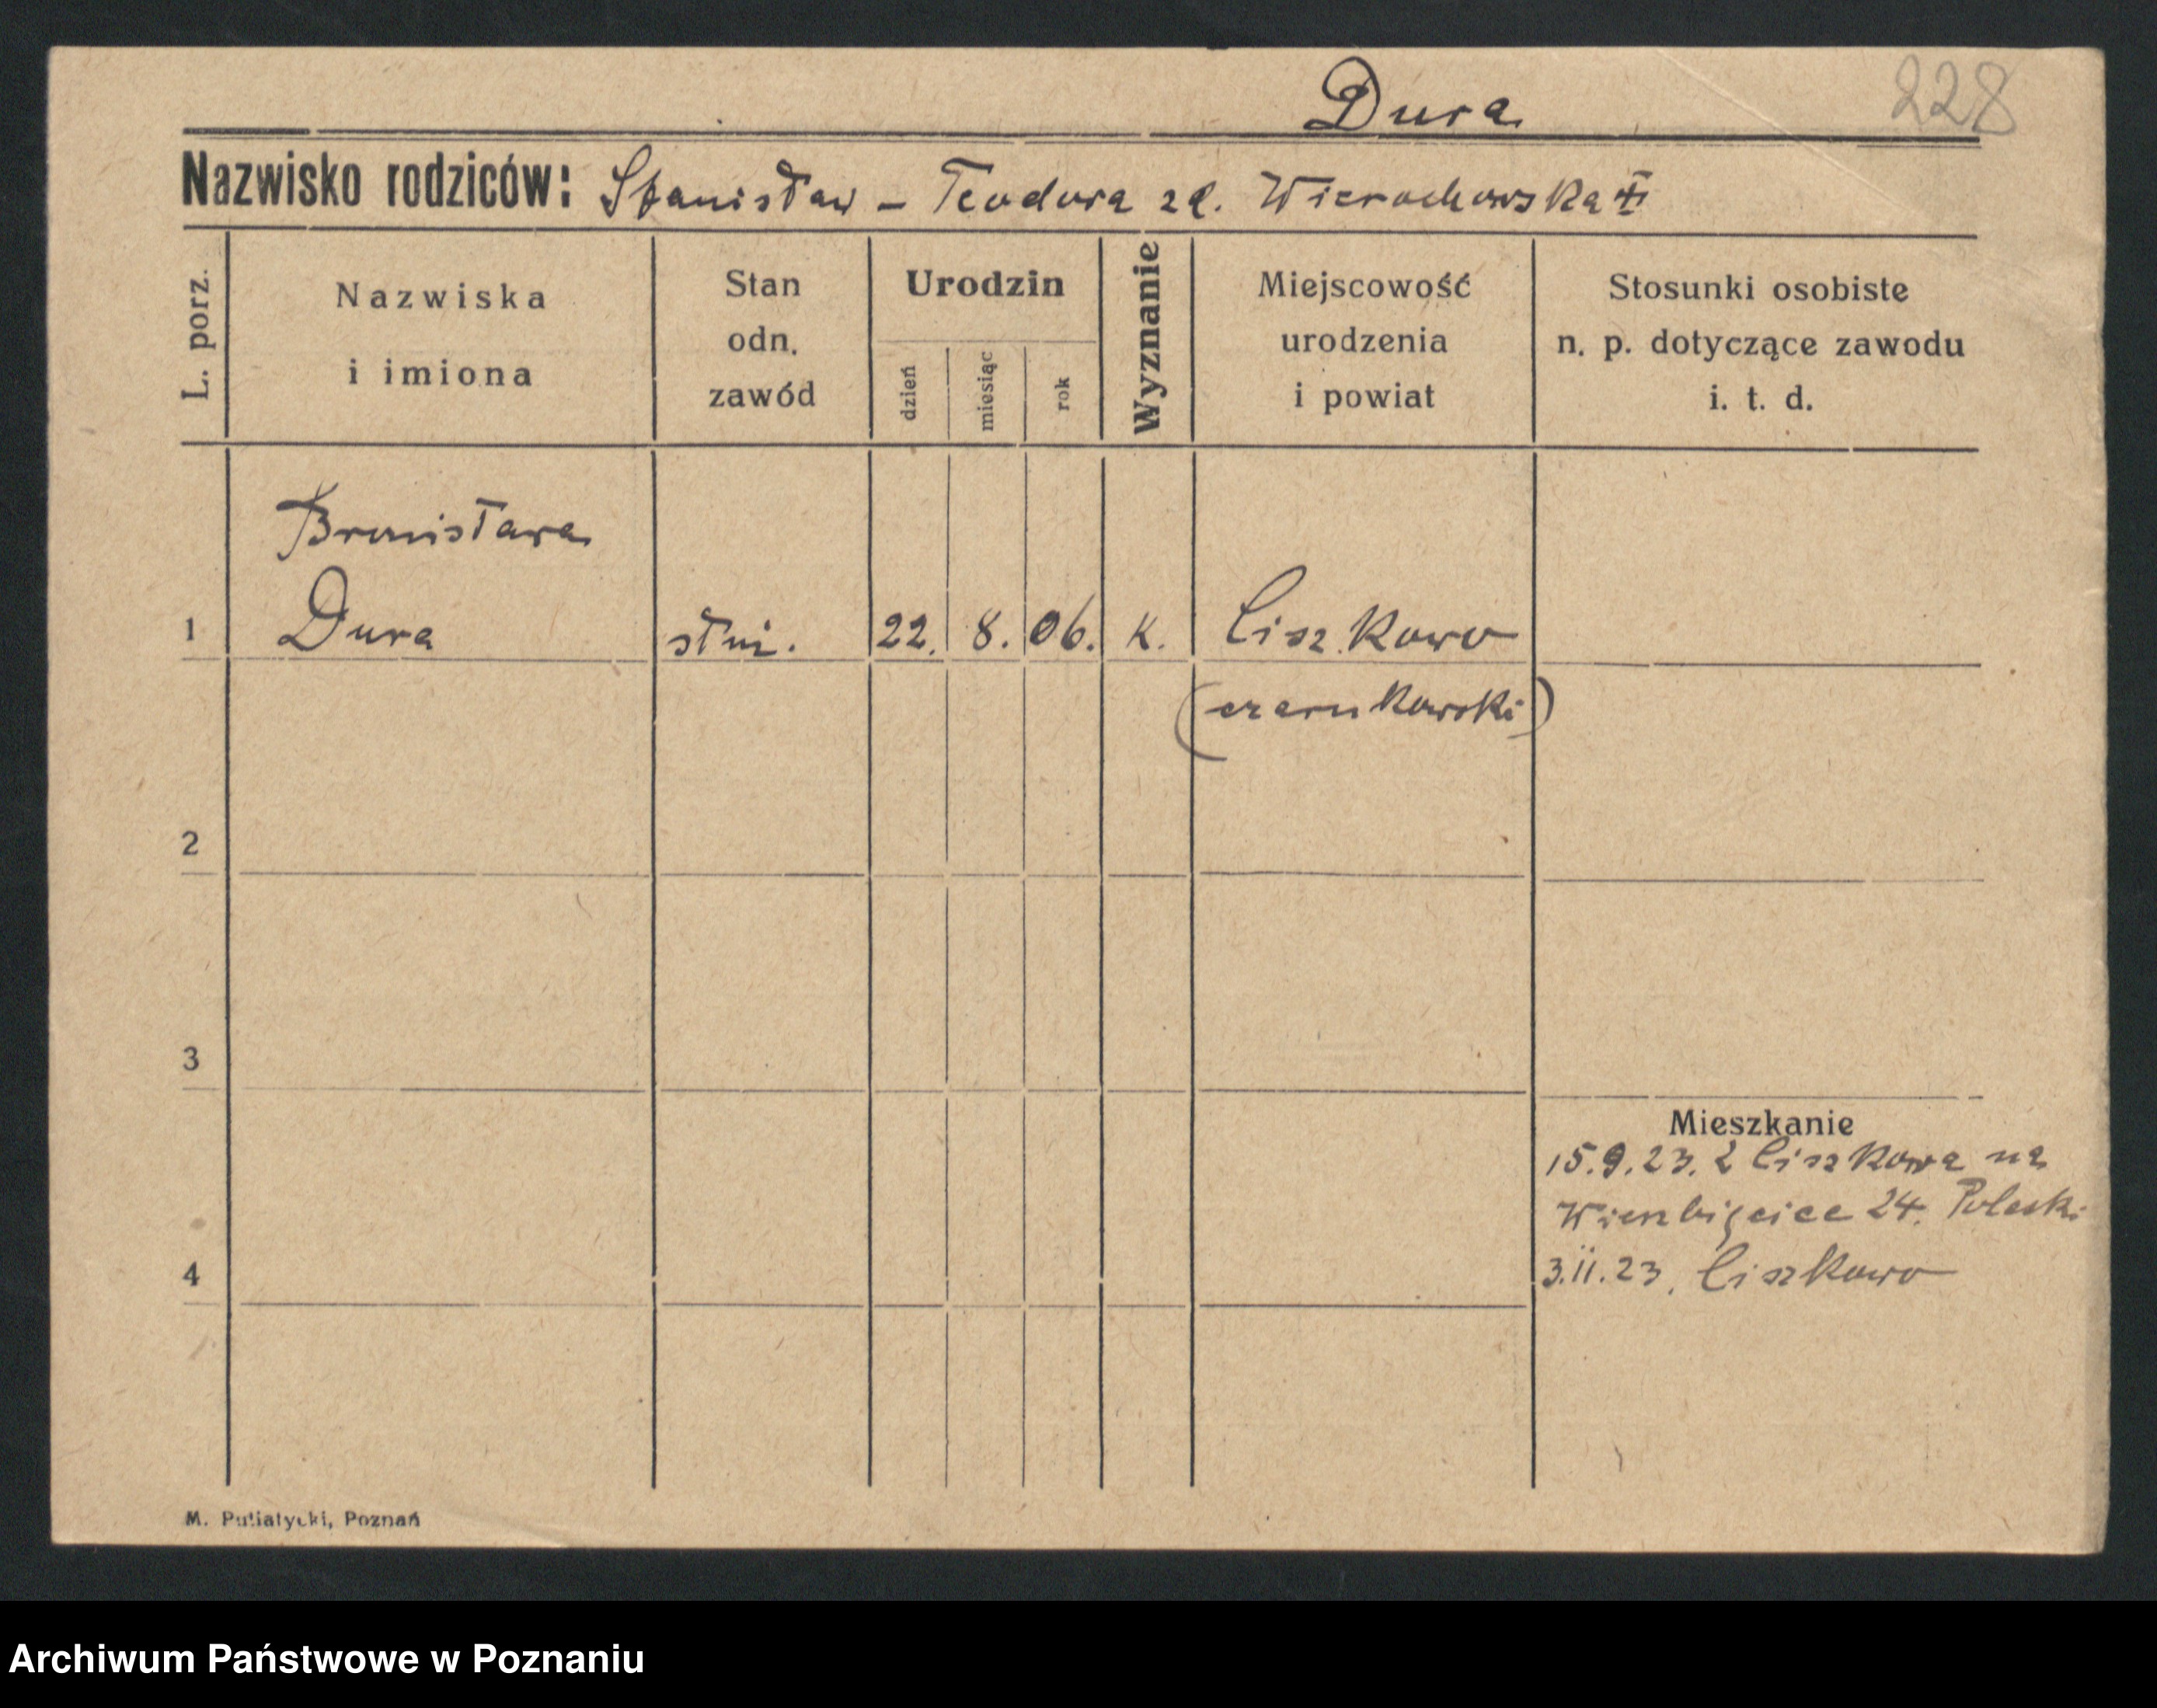 Dura
228
Nazwisko rodziców: Stanisław – Teodora zd. Wierochowska
L. porz.
Nazwiska
i imiona
Stan
odn.
zawód
Urodzin
dzień
miesiąc
rok
Wyznanie
Miejscowość
urodzenia
i powiat
Stosunki osobiste
n. p. dotyczące zawodu
i. t. d.
Bronisława
1 Dura służ. 22. 8. 06. K. Liszkowo
(czarnkowski)
2
3
Mieszkanie
15.9.23. z Liszkowa na
Wierzbięcice 24. Poleski
3.11.23. Liszkowo
4
M. Putiatycki, Poznań
Archiwum Państwowe w Poznaniu